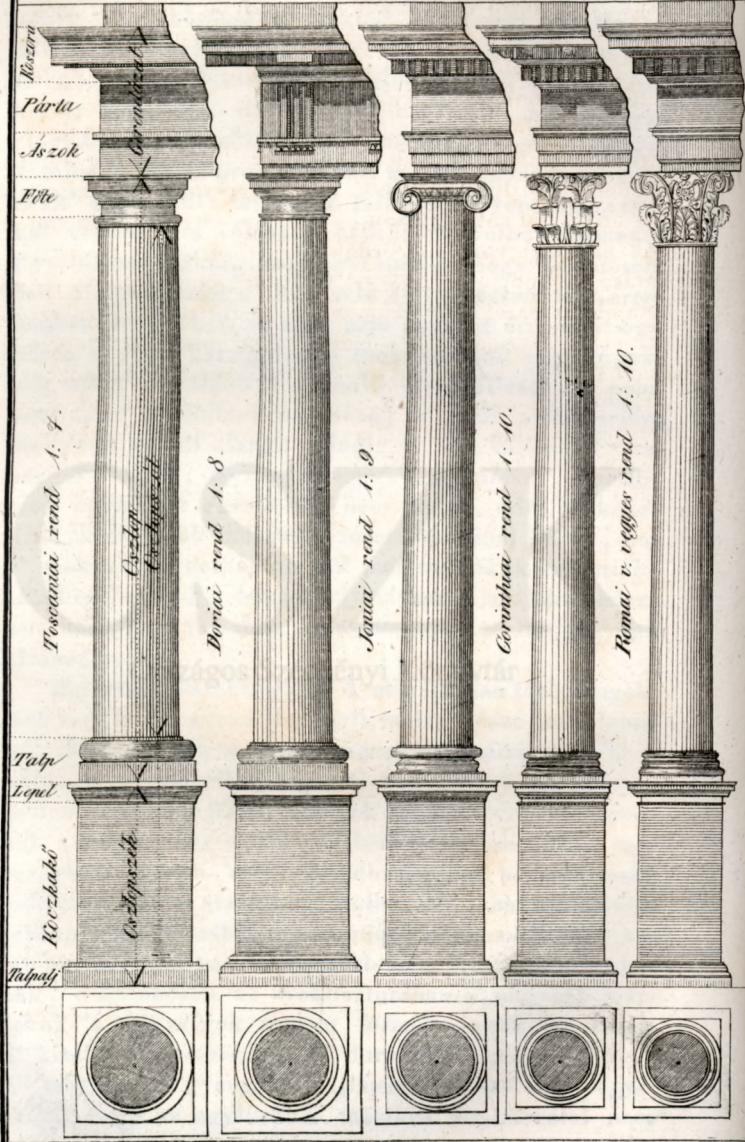 Koszorú
Párta
Ászok
Főte
Talp
Lepel
Koczkakő
Talpalj
Gerendázat
Oszlop
Oszlopszék
Toscaniai rend 1: 7.
Doriai rend 1: 8.
Joniai rend 1: 9
Corinthiai rend 1: 10.
Romai v. vegyes rend 1: 10.
OSZK
Országos Széchényi Könyvtár